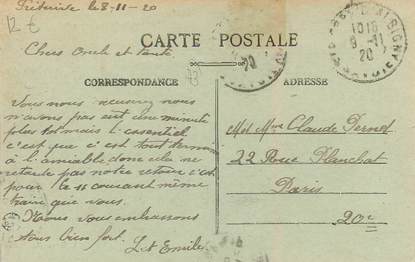 le 8-11-20
12 €
Chers Oncle et Tante
CARTE POSTALE
CORRESPONDANCE
ADRESSE
10 15
8 -11
20
20
Vous nous nous
n'avons pas eut une minute
l'essentiel
c'est que c'est tout terminé
à l'amiable donc cela ne
retarde pas notre retour c'est
pour le 11 courant même
train que vous.
Nous vous embrassons
tous bien fort. L et Emile
Mr et Mme Claude Pernot
22 Rue Planchat
Paris
20e